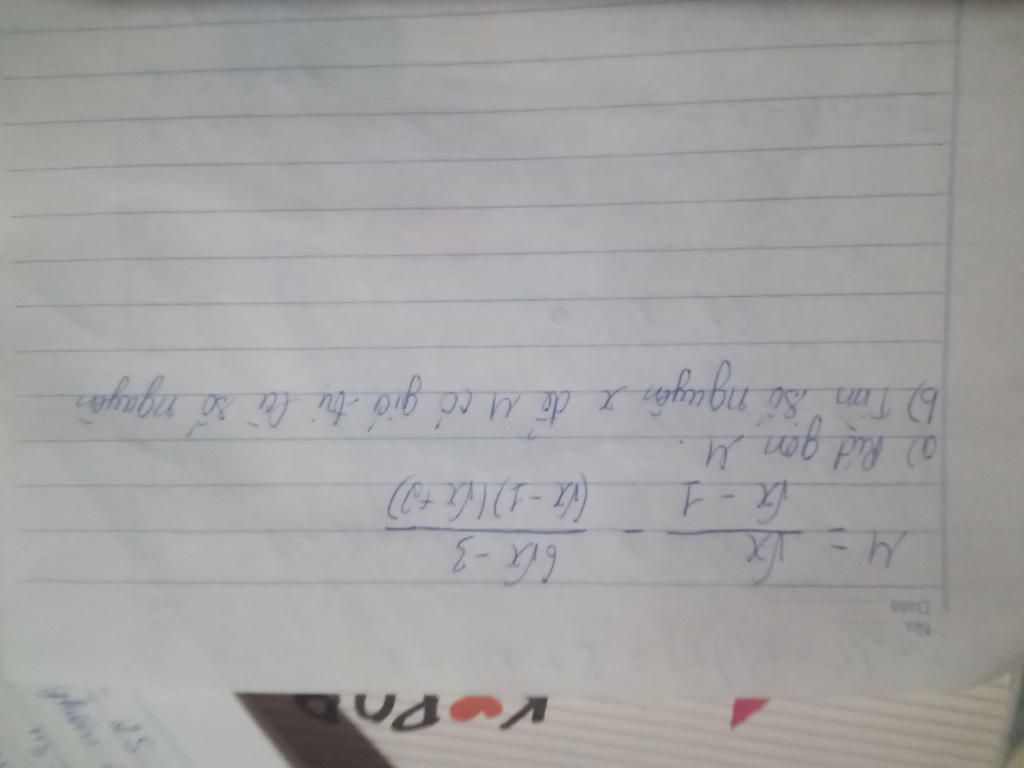 No.
Date
M = √x / √x - 1 - 6√x - 3 / (√x - 1)(√x + 2)
a) Rút gọn M.
b) Tìm số nguyên x để M có giá trị là số nguyên
K♥POP